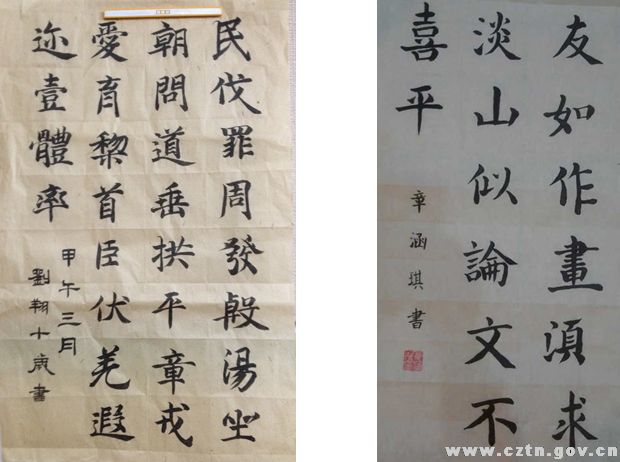 民伐罪周發殷湯坐
朝問道垂拱平章戎
愛育黎首臣伏羌遐
迩壹體率
甲午三月
劉翔十歲書
友如作畫須求
淡山似論文不
喜平
章涵琪書
www.cztn.gov.cn